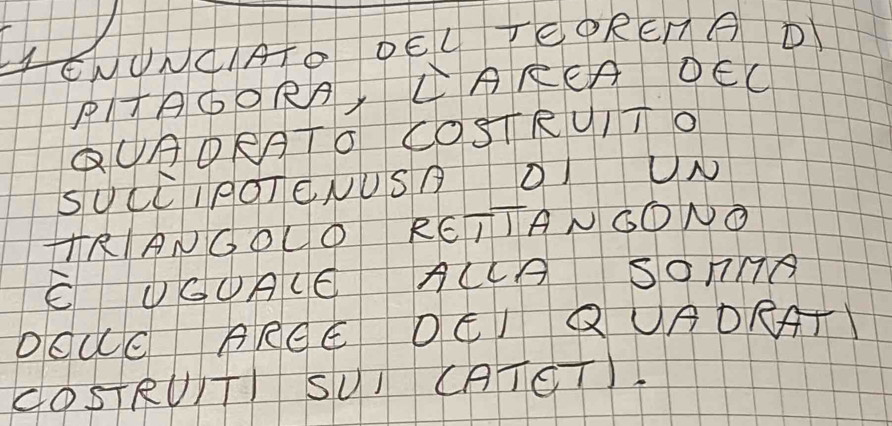 ENUNCIATO DEL TEOREMA DI
PITAGORA, L'AREA DEL
QUADRATO COSTRUITO
SULL'IPOTENUSA DI UN
TRIANGOLO RETTANGONO
È UGUALE ALLA SOMMA
DELLE AREE DEI QUADRATI
COSTRUITI SUI CATETI.